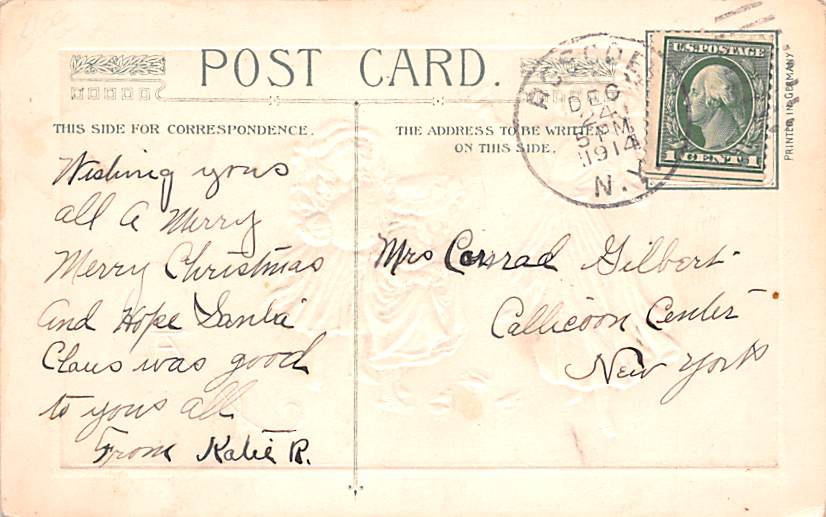 POST CARD.
THIS SIDE FOR CORRESPONDENCE.
THE ADDRESS TO BE WRITTEN
ON THIS SIDE.
ROSCOE
DEC
24
5 PM
1914
N.Y.
U.S. POSTAGE
1 CENT 1
PRINTED IN GERMANY
Wishing yous
all A Merry
Merry Christmas
and Hope Santa
Claus was good
to yous all
From Katie R.
Mrs Conrad Gilbert
Callicoon Center
New York